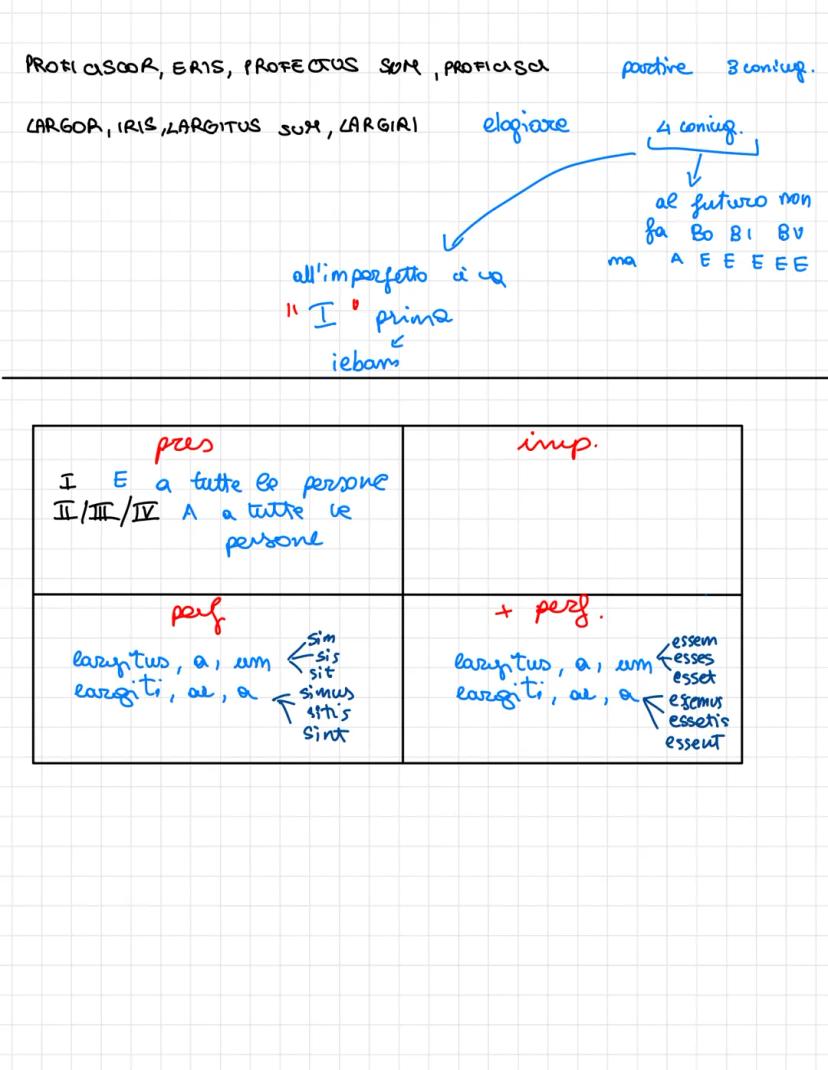 PROFICISCOR, ERIS, PROFECTUS SUM, PROFICISCI partire 3 coniug.
LARGOR, IRIS, LARGITUS SUM, LARGIRI elogiare 4 coniug.
al futuro non
fa BO BI BU
ma A E E E E E
all'imperfetto ci va
"I" prima
iebam
pres
I E a tutte le persone
II/III/IV A a tutte le
persone
imp.
perf
largitus, a, um
largiti, ae, a
sim
sis
sit
simus
sitis
sint
+ perf.
largitus, a, um
largiti, ae, a
essem
esses
esset
essemus
essetis
essent